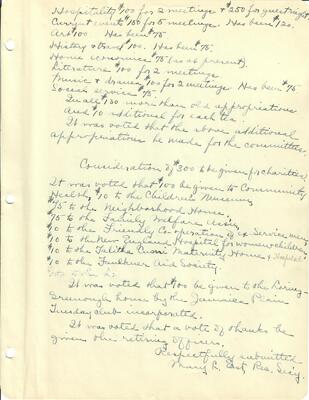 Hospitality $100 for 2 meetings & $250 for guest night
Current events $150 for 5 meetings. Has been $120.
Art $100 Has been $75.
History & travel $100. Has been $75.
Home economics $75 (as at present).
Literature $100 for 2 meetings
Music & drama $100 for 2 meetings. Has been $75
Social service $75.
In all $130 more than old appropriations
And $10 additional for each tea.
It was voted that the above additional
appropriations be made for the committees.
Consideration of $300 to be given for charities.
It was voted that $100 be given to Community
Health, $10 to the Children's Museum
$75 to the Neighborhood House
$75 to the Family Welfare Assn.
$10 to the Friendly Co-operation of Ex Service men
$10 to the New England Hospital for women & children
$10 to the Talitha Cumi Maternity Home & Hospital
$10 to the Faulkner Aid Society.
It was voted that $100 be given to the Loring-
Greenough house by the Jamaica Plain
Tuesday club incorporated.
It was voted that a vote of thanks be
given the retiring officers.
Respectfully submitted
Mary R. East Rec. Secy.